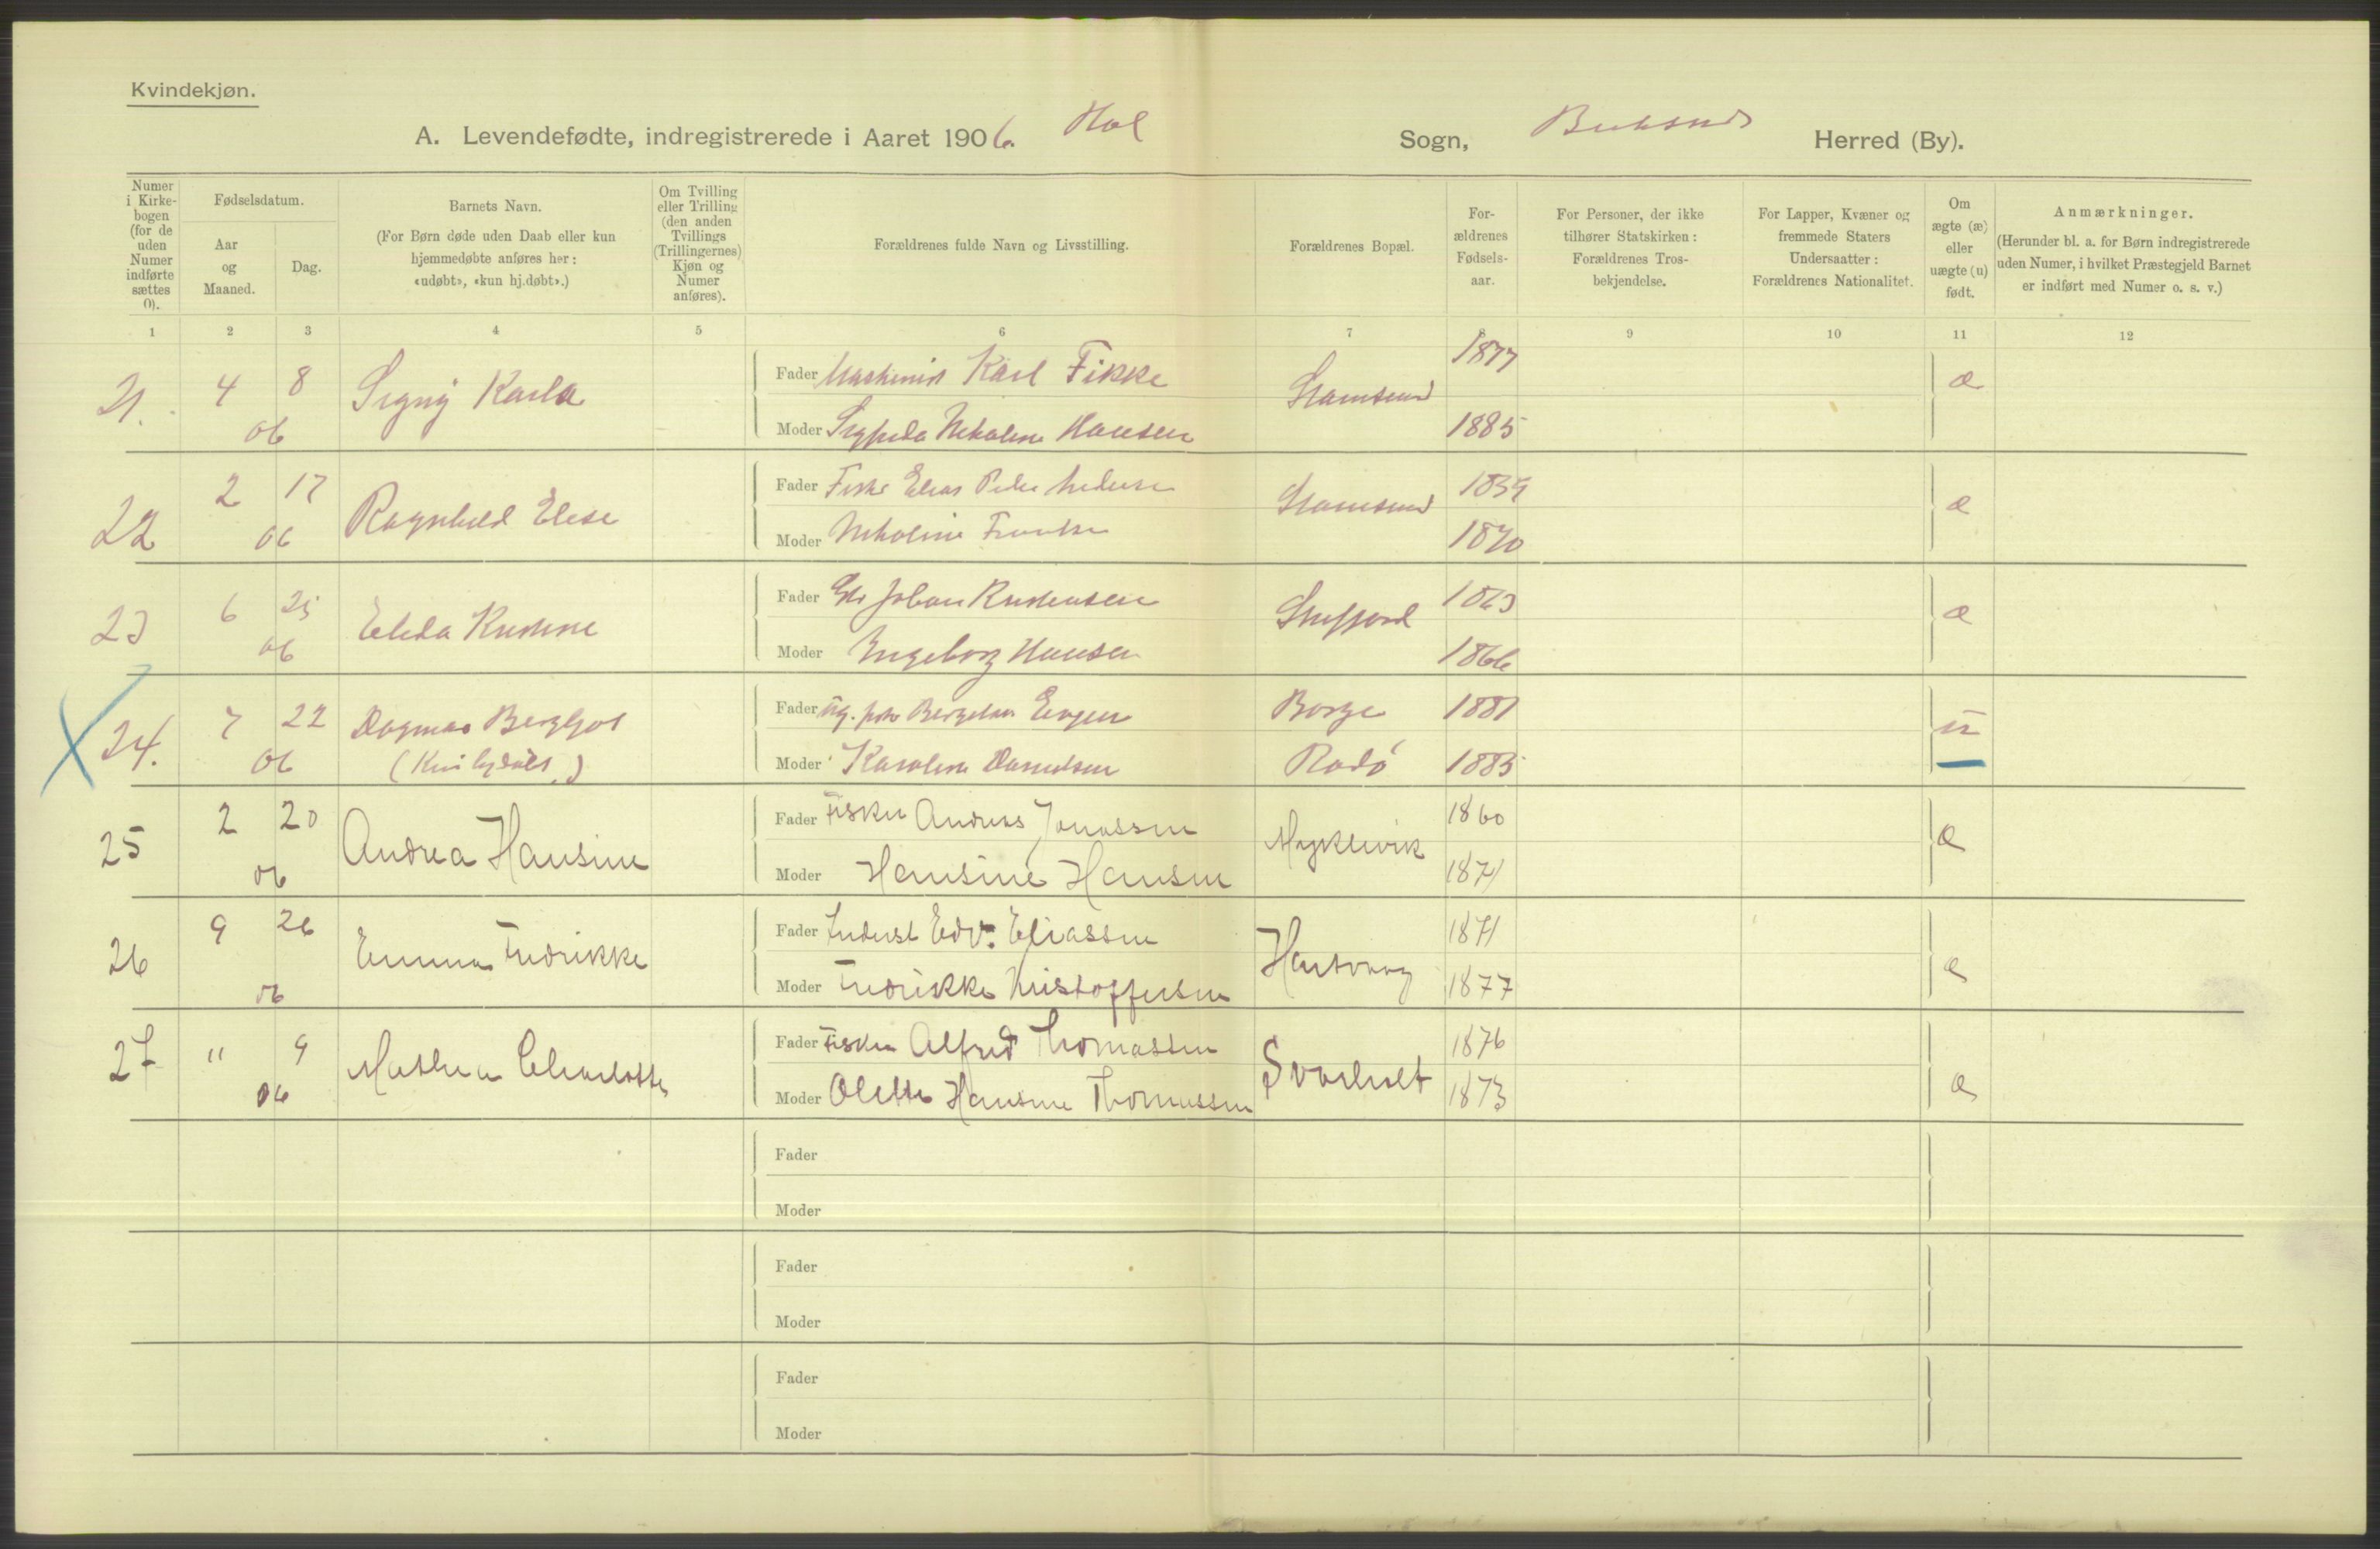 Kvindekjøn.
A. Levendefødte, indregistrerede i Aaret 1906. Hol Sogn, Buksnes Herred (By).
Numer i Kirke-bogen (for de uden Numer indførte sættes 0).
Fødselsdatum.
Aar og Maaned.
Dag.
Barnets Navn.
(For Børn døde uden Daab eller kun hjemmedøbte anføres her: «udøbt», «kun hj.døbt».)
Om Tvilling eller Trilling (den anden Tvillings (Trillingernes) Kjøn og Numer anføres).
Forældrenes fulde Navn og Livsstilling.
Forældrenes Bopæl.
For-ældrenes Fødsels-aar.
For Personer, der ikke tilhører Statskirken: Forældrenes Tros-bekjendelse.
For Lapper, Kvæner og fremmede Staters Undersaatter: Forældrenes Nationalitet.
Om ægte (æ) eller uægte (u) født.
Anmærkninger.
(Herunder bl. a. for Børn indregistrerede uden Numer, i hvilket Præstegjeld Barnet er indført med Numer o. s. v.)
1 2 3 4 5 6 7 8 9 10 11 12
21. 4 8 06 Signy Karla
Fader Maskinist Karl Fikke Stamsund 1877 æ
Moder Nikoline Hansen 1885
22 2 17 06 Ragnhild Elise
Fader Fisker Elias Peder Stamsund æ
Moder Nikoline 1870
23 6 25 06 Elida
Fader Johan 1863 æ
Moder Ingeborg Hansen 1866
24. 7 22 06 Dagmar Bergljot
Fader Borge 1881 u
Moder Karoline Danielsen 1885
25 2 20 06 Andrea Hansine
Fader Fisker Andreas Jonassen Myklevik 1860 æ
Moder Hansine Hansen 1871
26 9 26 06 Emma Fredrikke
Fader Edv. Eliassen 1871 æ
Moder Fredrikke Kristoffersen 1877
27 " 9 06 Mathea Charlotte
Fader Fisker Alfred Thomassen Svarholt 1876 æ
Moder Olette Hansine Thomassen 1873
Fader
Moder
Fader
Moder
Fader
Moder